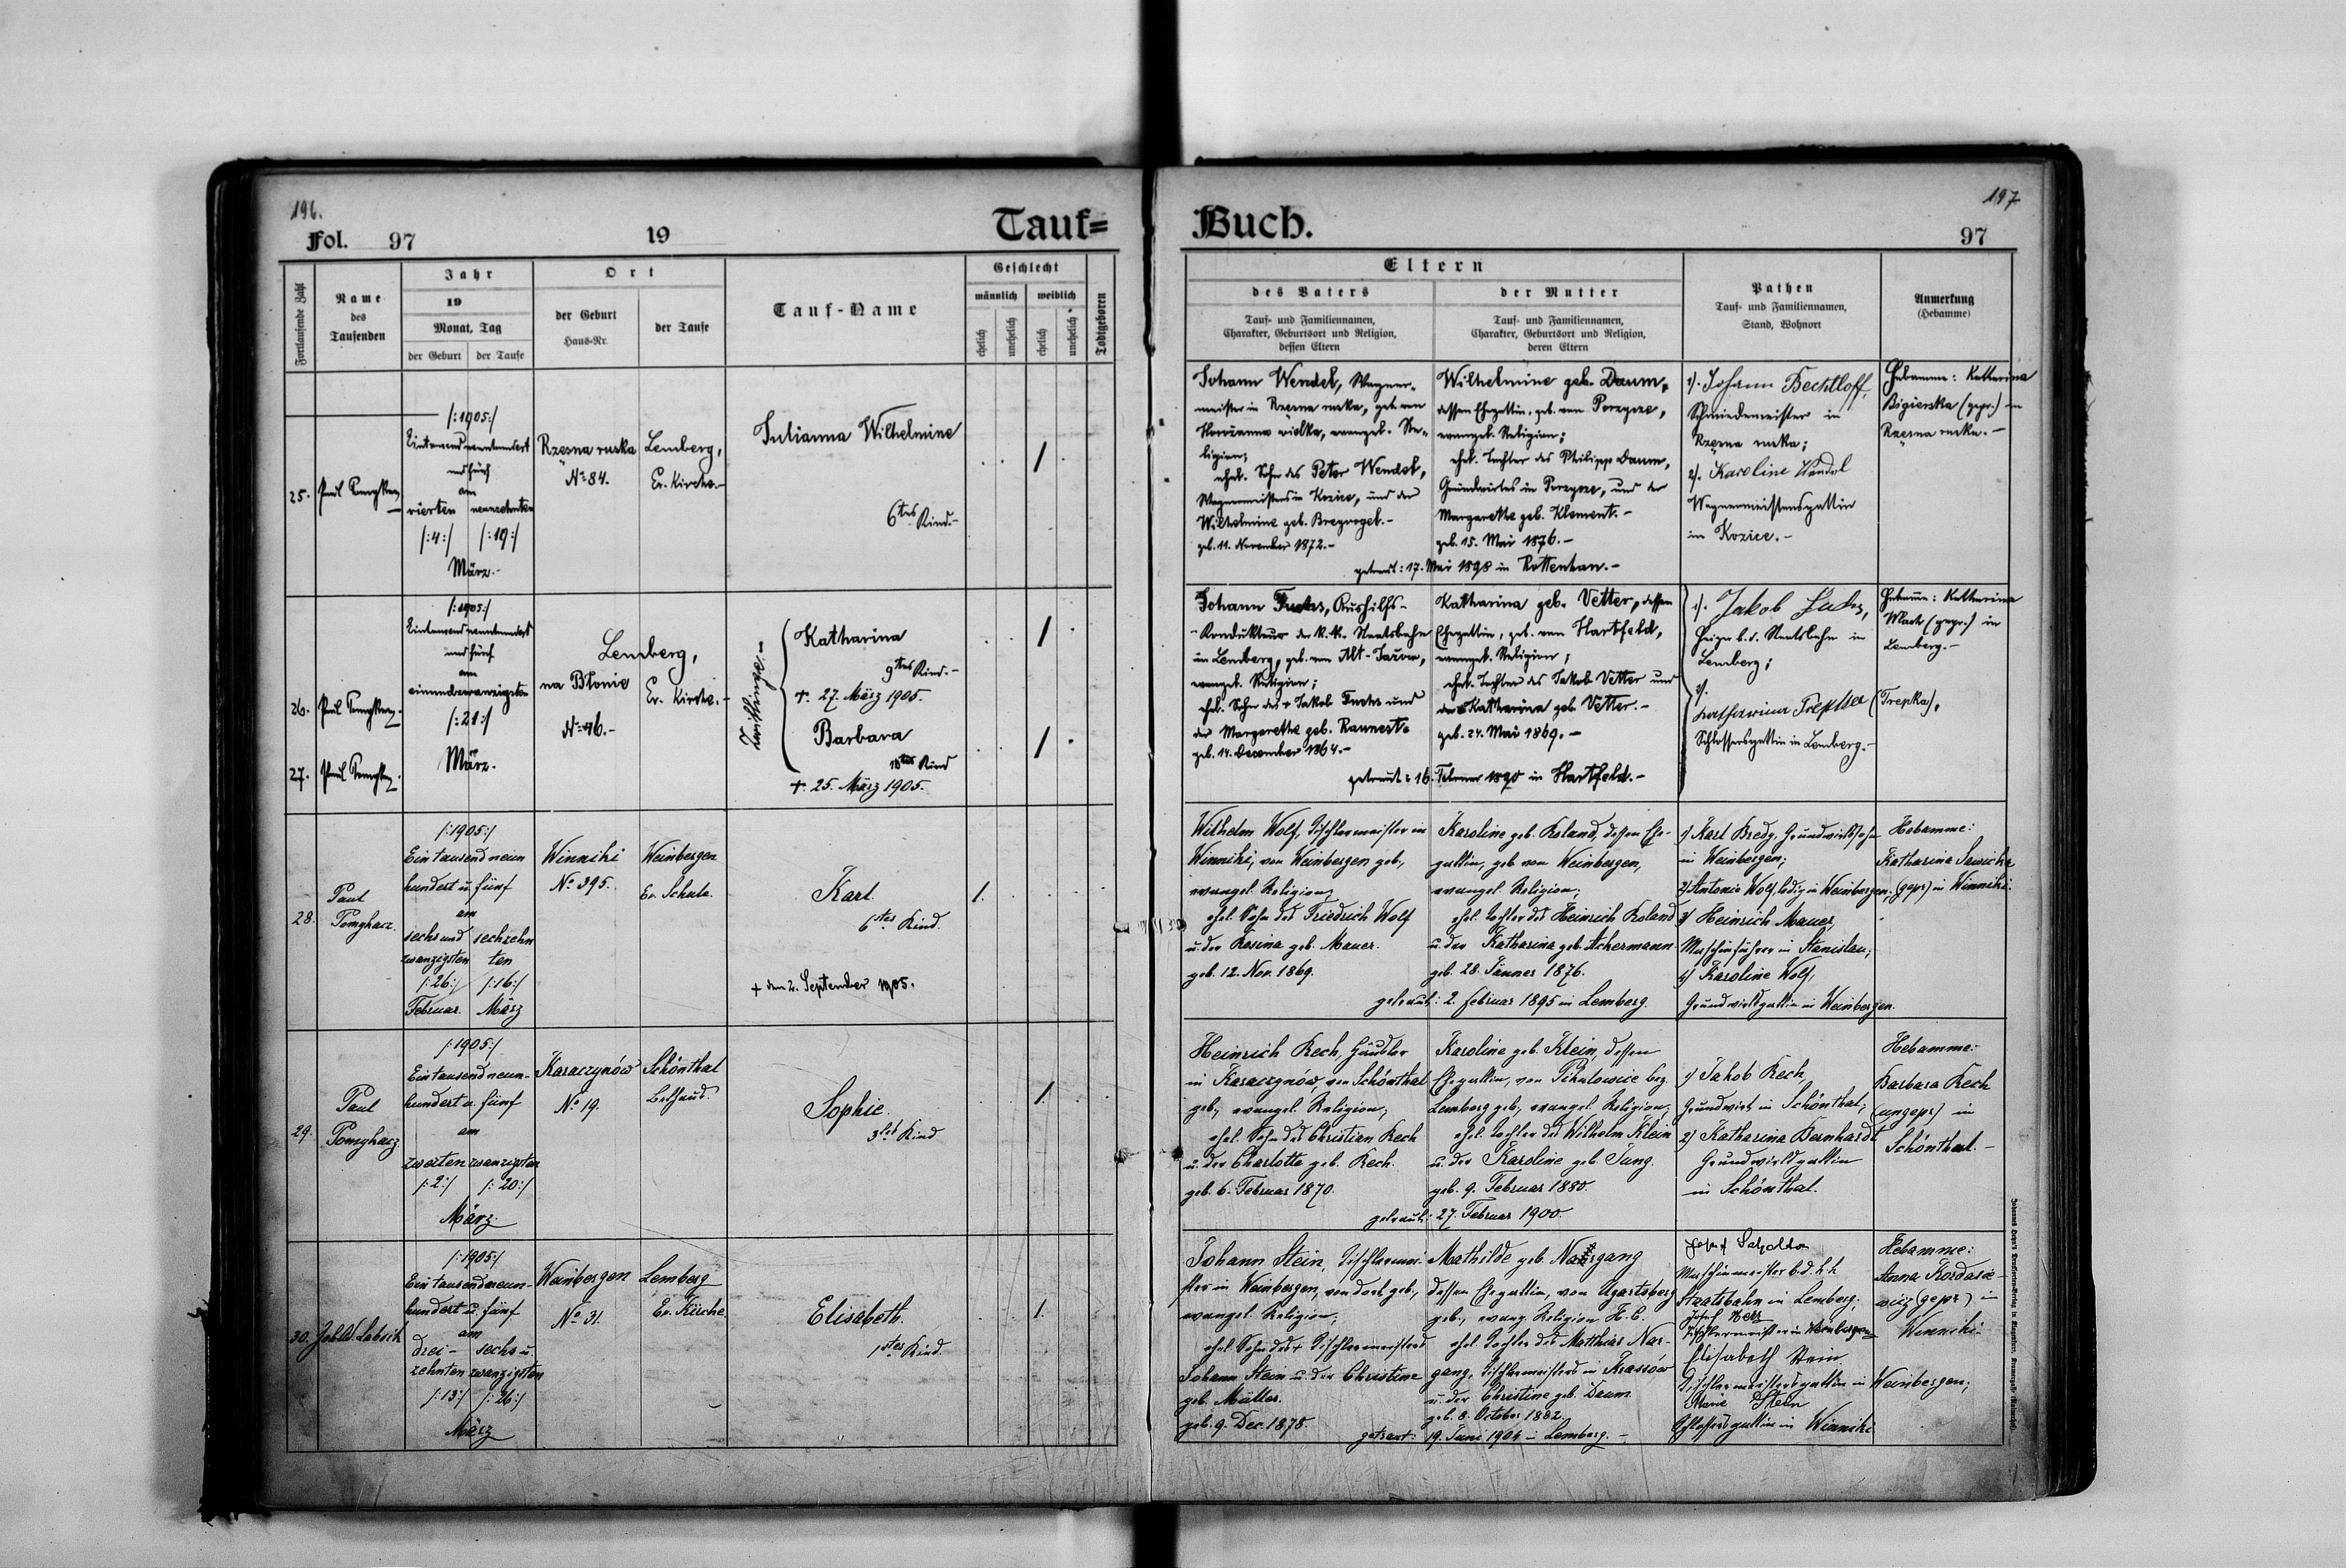 196.
Fol. 97
19
Tauf=
Fortlaufende Zahl
Name
des
Taufenden
Jahr
19
Monat, Tag
der Geburt
der Taufe
Ort
der Geburt
Haus-Nr.
der Taufe
Tauf-Name
Geschlecht
männlich
weiblich
ehelich
unehelich
ehelich
unehelich
Todtgeboren
25.
/:1905:/
und fünf
am
vierten neunzehnten
/:4:/ /:19:/
März.-
Rzęsna ruska
No 84.
Lemberg,
Ev. Kirche.-
Julianna Wilhelmine
6tes Kind.-
/
26.
27.
/:1905:/
und fünf
am
einundzwanzigsten
/:21:/
März.
Lemberg,
na Błonie
No 46.-
Ev. Kirche.-
Zwillinge.-
Katharina
9tes Kind.-
+. 27. März 1905.
Barbara
10tes Kind
+. 25. März 1905.
/
/
28.
Paul
/:1905:/
Ein tausend neun
hundert u. fünf
am
sechs und sechzehn
zwanzigsten ten
/:26:/ /:16:/
Februar. März
Winniki
No 395.
Weinbergen
Ev. Schule.
Karl.
6tes Kind.
+ den 2. September 1905.
/.
29.
Paul
/:1905:/
Ein tausend neun-
hundert u. fünf
am
zweiten zwanzigsten
/:2:/ /:20:/
März.
Karaczynów
No 19.
Schönthal
Bethaus.
Sophie.
3tes Kind
/.
30.
/:1905:/
Ein tausend neun-
hundert u. fünf
am
drei- sechs u.
zehnten zwanzigsten
/:13:/ /:26:/
März
Weinbergen
No 31.
Lemberg
Ev. Kirche
Elisabeth.
1stes Kind.
/.
197
Buch.
97
Eltern
des Vaters
Tauf- und Familiennamen,
Charakter, Geburtsort und Religion,
dessen Eltern
der Mutter
Tauf- und Familiennamen,
Charakter, Geburtsort und Religion,
deren Eltern
Pathen
Tauf- und Familiennamen,
Stand, Wohnort
Anmerkung
(Hebamme)
Johann Wendel, Wagner-
meister in Rzęsna ruska, geb. von
wielka, evangel. Re-
ligion;
ehel. Sohn des Peter Wendel,
Wagnermeisters in Kozice, und der
Wilhelmine geb. Bregvogel.-
geb. 11. November 1872.-
Wilhelmine geb. Daum,
dessen Ehegattin, geb. von Porzycze,
evangel. Religion;
ehel. Tochter des Philipp Daum,
Grundwirtes in Porzycze, und der
Margarethe geb. Klement.-
geb. 15. Mai 1876.-
getraut: 17. Mai 1898 in Rottenhan.-
1). Johann Bechtloff,
Schmiedemeister in
Rzęsna ruska;
2). Karoline Wendel
Wagnermeistersgattin
in Kozice.-
Hebamme: Katharina
Bigierska (gepr.) in
Rzęsna ruska.-
Johann Fuchs, Aushilfs-
-Kondukteur der k.k. Staatsbahn
in Lemberg, geb. von Alt-Jażow,
evangel. Religion;
ehel. Sohn des + Jakob Fuchs und
der Margarethe geb.
geb. 14. December 1864.-
Katharina geb. Vetter, dessen
Ehegattin, geb. von Hartfeld,
evangel. Religion;
ehel. Tochter des Jakob Vetter und
der Katharina geb. Vetter.-
geb. 24. Mai 1869.-
getraut: 16. Februar 1890 in Hartfeld.-
1). Jakob Fuchs,
Heizer b. d. Staatsbahn in
Lemberg;
2).
Katharina Trepka (Trepka),
Schlossersgattin in Lemberg.-
Hebamme: Katharina
(gepr.) in
Lemberg.-
Wilhelm Wolf, Tischlermeister in
Winniki, von Weinbergen geb.,
evangel. Religion;
ehel. Sohn des Friedrich Wolf
u. der Rosina geb. Mauer.
geb. 12. Nov. 1869.
Karoline geb. Roland, dessen Ehe-
gattin, geb. von Weinbergen,
evangel. Religion;
ehel. Tochter des Heinrich Roland
u. der Katharina geb. Achermann
geb. 28. Jänner 1876.
getraut: 2. Februar 1895 in Lemberg.
1) Karl Bredy, Grundwirtssohn
in Weinbergen;
2) Antonie Wolf, ledig in Weinbergen;
3) Heinrich Mauer,
Maschinführer in Stanislau;
4) Karoline Wolf,
Grundwirtsgattin in Weinbergen.
Hebamme:
Katharina Sawicka
(gepr) in Winniki.
Heinrich Rech, Häusler
in Karaczynów, von Schönthal
geb., evangel. Religion;
ehel. Sohn des Christian Rech
u. der Charlotte geb. Rech.
geb. 6. Februar 1870.
Karoline geb. Klein, dessen
Ehegattin, von Pikulowice bez.
Lemberg geb., evangel. Religion;
ehel. Tochter des Wilhelm Klein
u. der Karoline geb. Jung.
geb. 9. Februar 1880.
getraut: 27. Februar 1900.
1) Jakob Rech,
Grundwirt in Schönthal;
2) Katharina Bernhardt
Grundwirtsgattin
in Schönthal.
Hebamme:
Barbara Rech
(ungepr) in
Schönthal.-
Johann Stein, Tischlermei-
ster in Weinbergen, von dort geb.,
evangel. Religion;
ehel. Sohn des + Tischlermeisters
Johann Stein u. der Christine
geb. Müller.
geb. 9. Dec. 1878.
Mathilde geb. Nargang
dessen Ehegattin, von Ugartsberg
geb., evang. Religion H. C.
ehel. Tochter des Matthias Nar-
gang, Tischlermeisters in Krasów
u. der Christine geb. Daum.
geb. 8. October 1882.
getraut: 19. Juni 1904 in Lemberg.-
Josef
Maschinmeister b. d. k. k.
Staatsbahn in Lemberg;
Josef
Tischlermeister in Weinbergen
Elisabeth Stein
Tischlermeistersgattin in Weinbergen;
Marie Stein
Schlossersgattin in Winniki
Hebamme:
Anna Kordasie-
wicz (gepr) in
Winniki.-